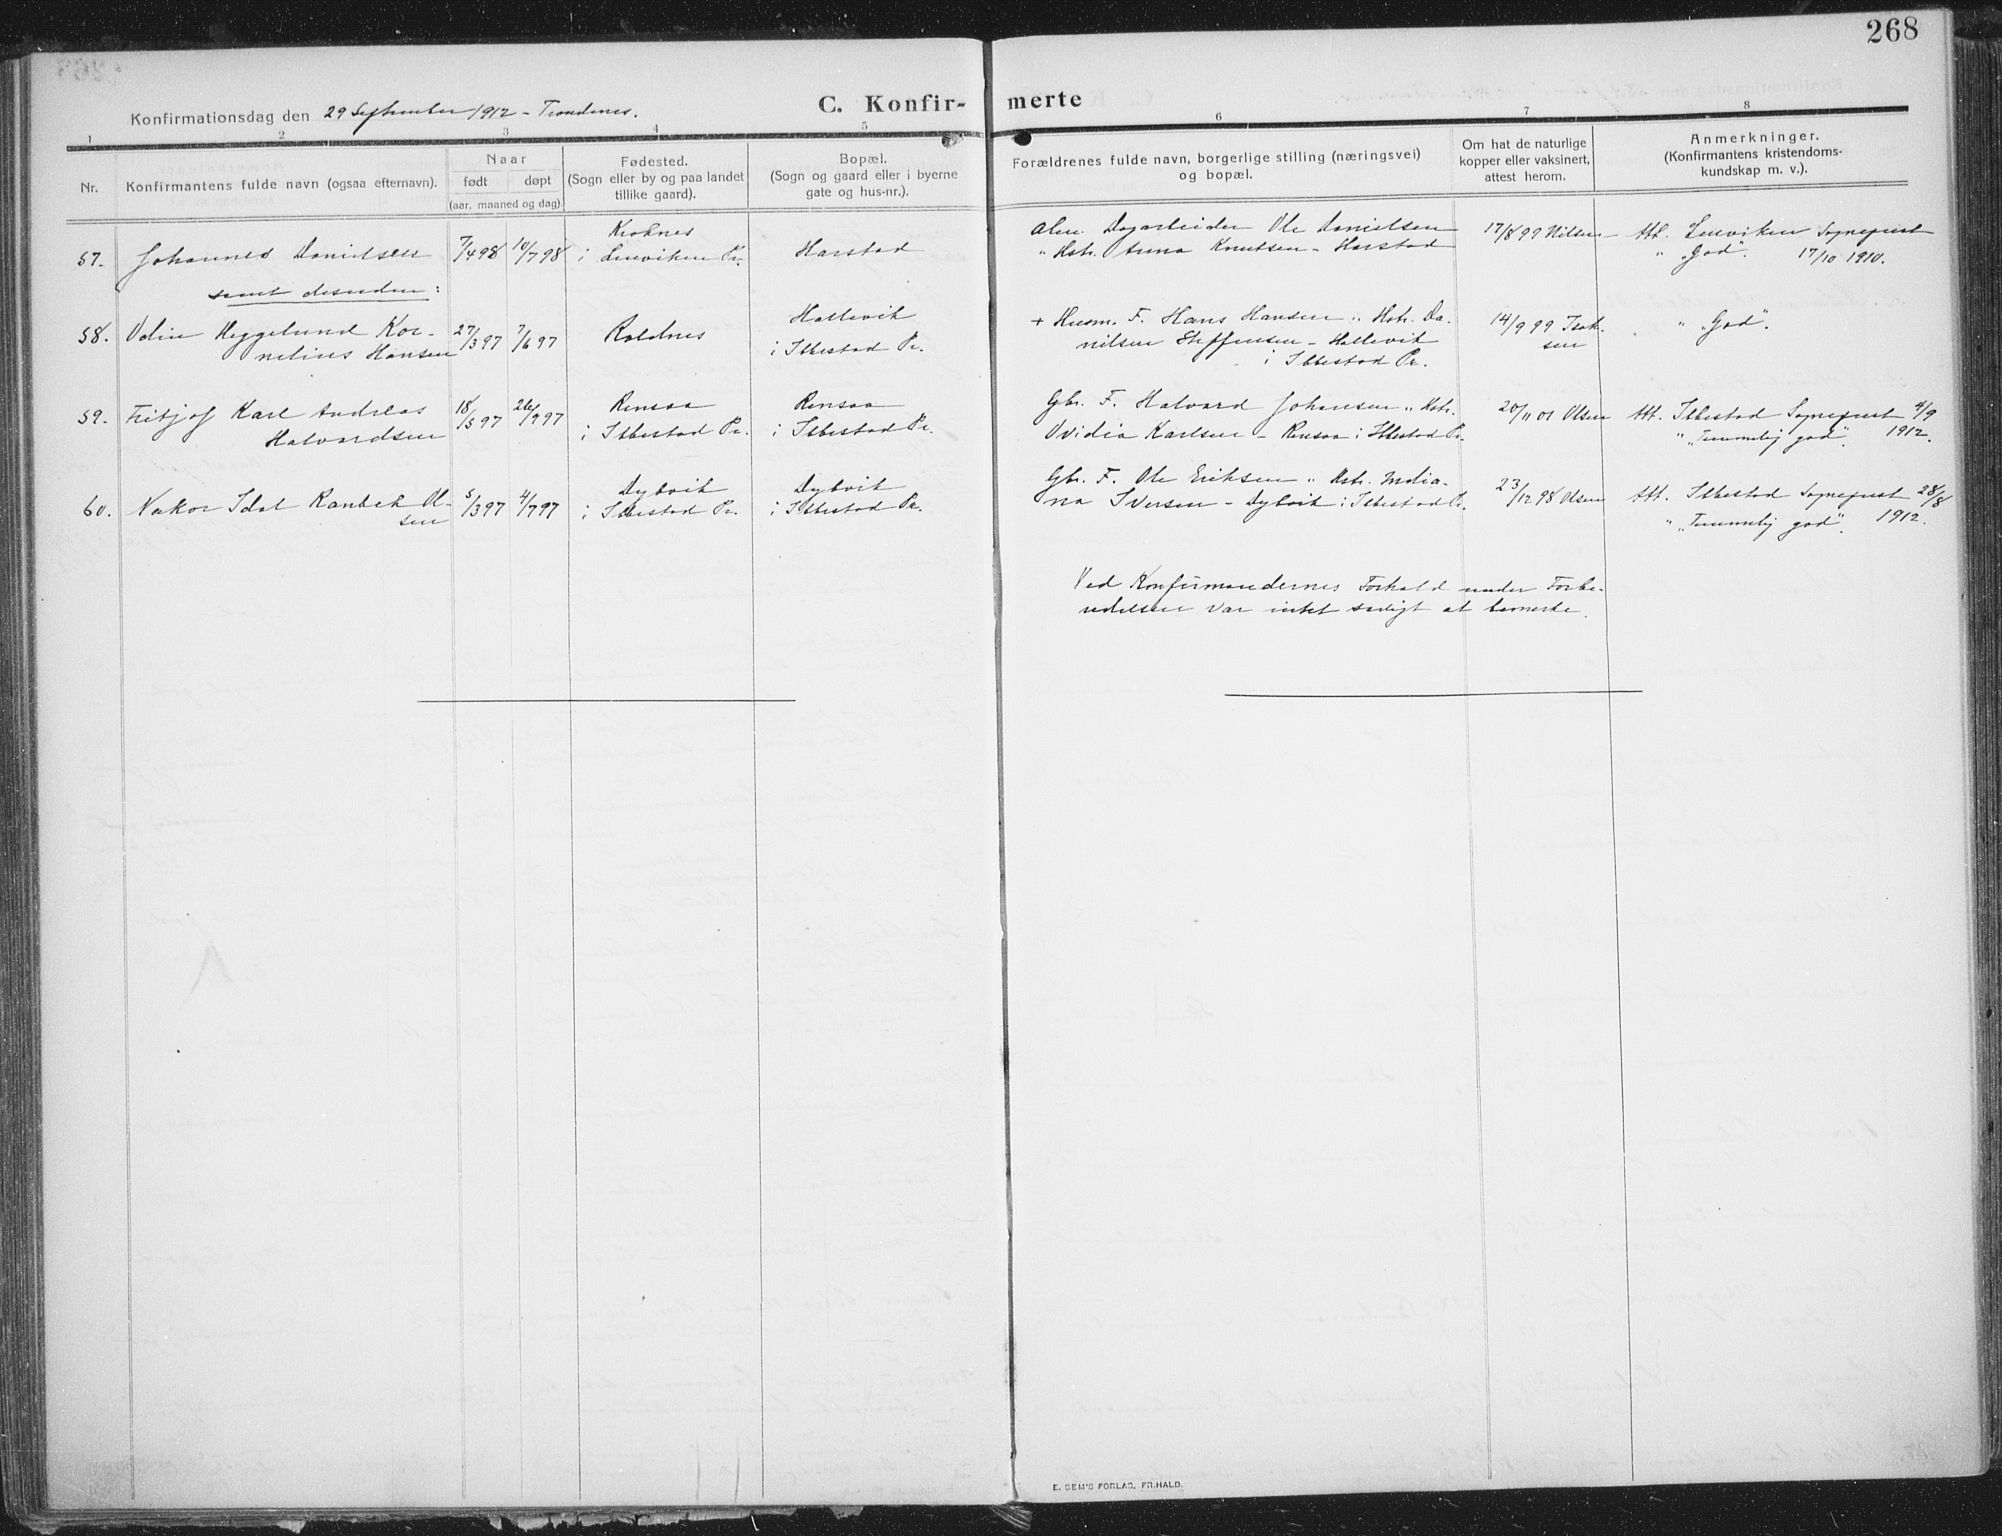 268
Konfirmationsdag den 29 September 1912 - Trondenes.
C. Konfir- merte
1 2 3 4 5 6 7 8
Nr.
Konfirmantens fulde navn (ogsaa efternavn).
Naar
født døpt
(aar, maaned og dag)
Fødested.
(Sogn eller by og paa landet
tillike gaard).
Bopæl.
(Sogn og gaard eller i byerne
gate og hus-nr.).
Forældrenes fulde navn, borgerlige stilling (næringsvei)
og bopæl.
Om hat de naturlige
kopper eller vaksinert,
attest herom.
Anmerkninger.
(Konfirmantens kristendoms-
kundskap m. v.).
57. Johannes Danielsen
7/4 98 10/7 98
Kroknes
i Lenviken Pr.
Harstad
Dagarbeider Ole Danielsen
" Hstr. Anna Knutsen - Harstad
17/8 99 Nilsen
Att. Lenviken Sogneprest
" "God". 17/10 1910.
samt desuden:
58. Odin Heggelund Kor-
nelius Hansen
27/3 97 7/6 97
Roldnes
Hallevik
i Ibbestad Pr.
+ Husm. F. Hans Hansen " Hstr. Da-
nilsen Steffensen - Hallevik
i Ibbestad Pr.
14/9 99 Isak-
sen
" "God".
59. Fritjof Karl Andreas
Halvardsen
18/5 97 26/9 97
Rensaa
i Ibbestad Pr.
Rensaa
i Ibbestad Pr.
Gbr. F. Halvard Johansen " Hstr.
Ovidia Karlsen - Rensaa i Ibbestad Pr.
20/11 01 Olsen
Att. Ibbestad Sogneprest 4/9
" "Temmelig god". 1912.
60. Hakor Idol Ranbek Ol-
sen
5/3 97 4/7 97
Dybvik
i Ibbestad Pr.
Dybvik
i Ibbestad Pr.
Gbr. F. Ole Eriksen " Hstr. India-
na Iversen - Dybvik i Ibbestad Pr.
23/12 98 Olsen
Att. Ibbestad Sogneprest 28/8
" "Temmelig god". 1912.
Ved Konfirmandernes Forhold under Forbe-
redelsen var intet særligt at bemerke.
E. SEM'S FORLAG, FR.HALD.